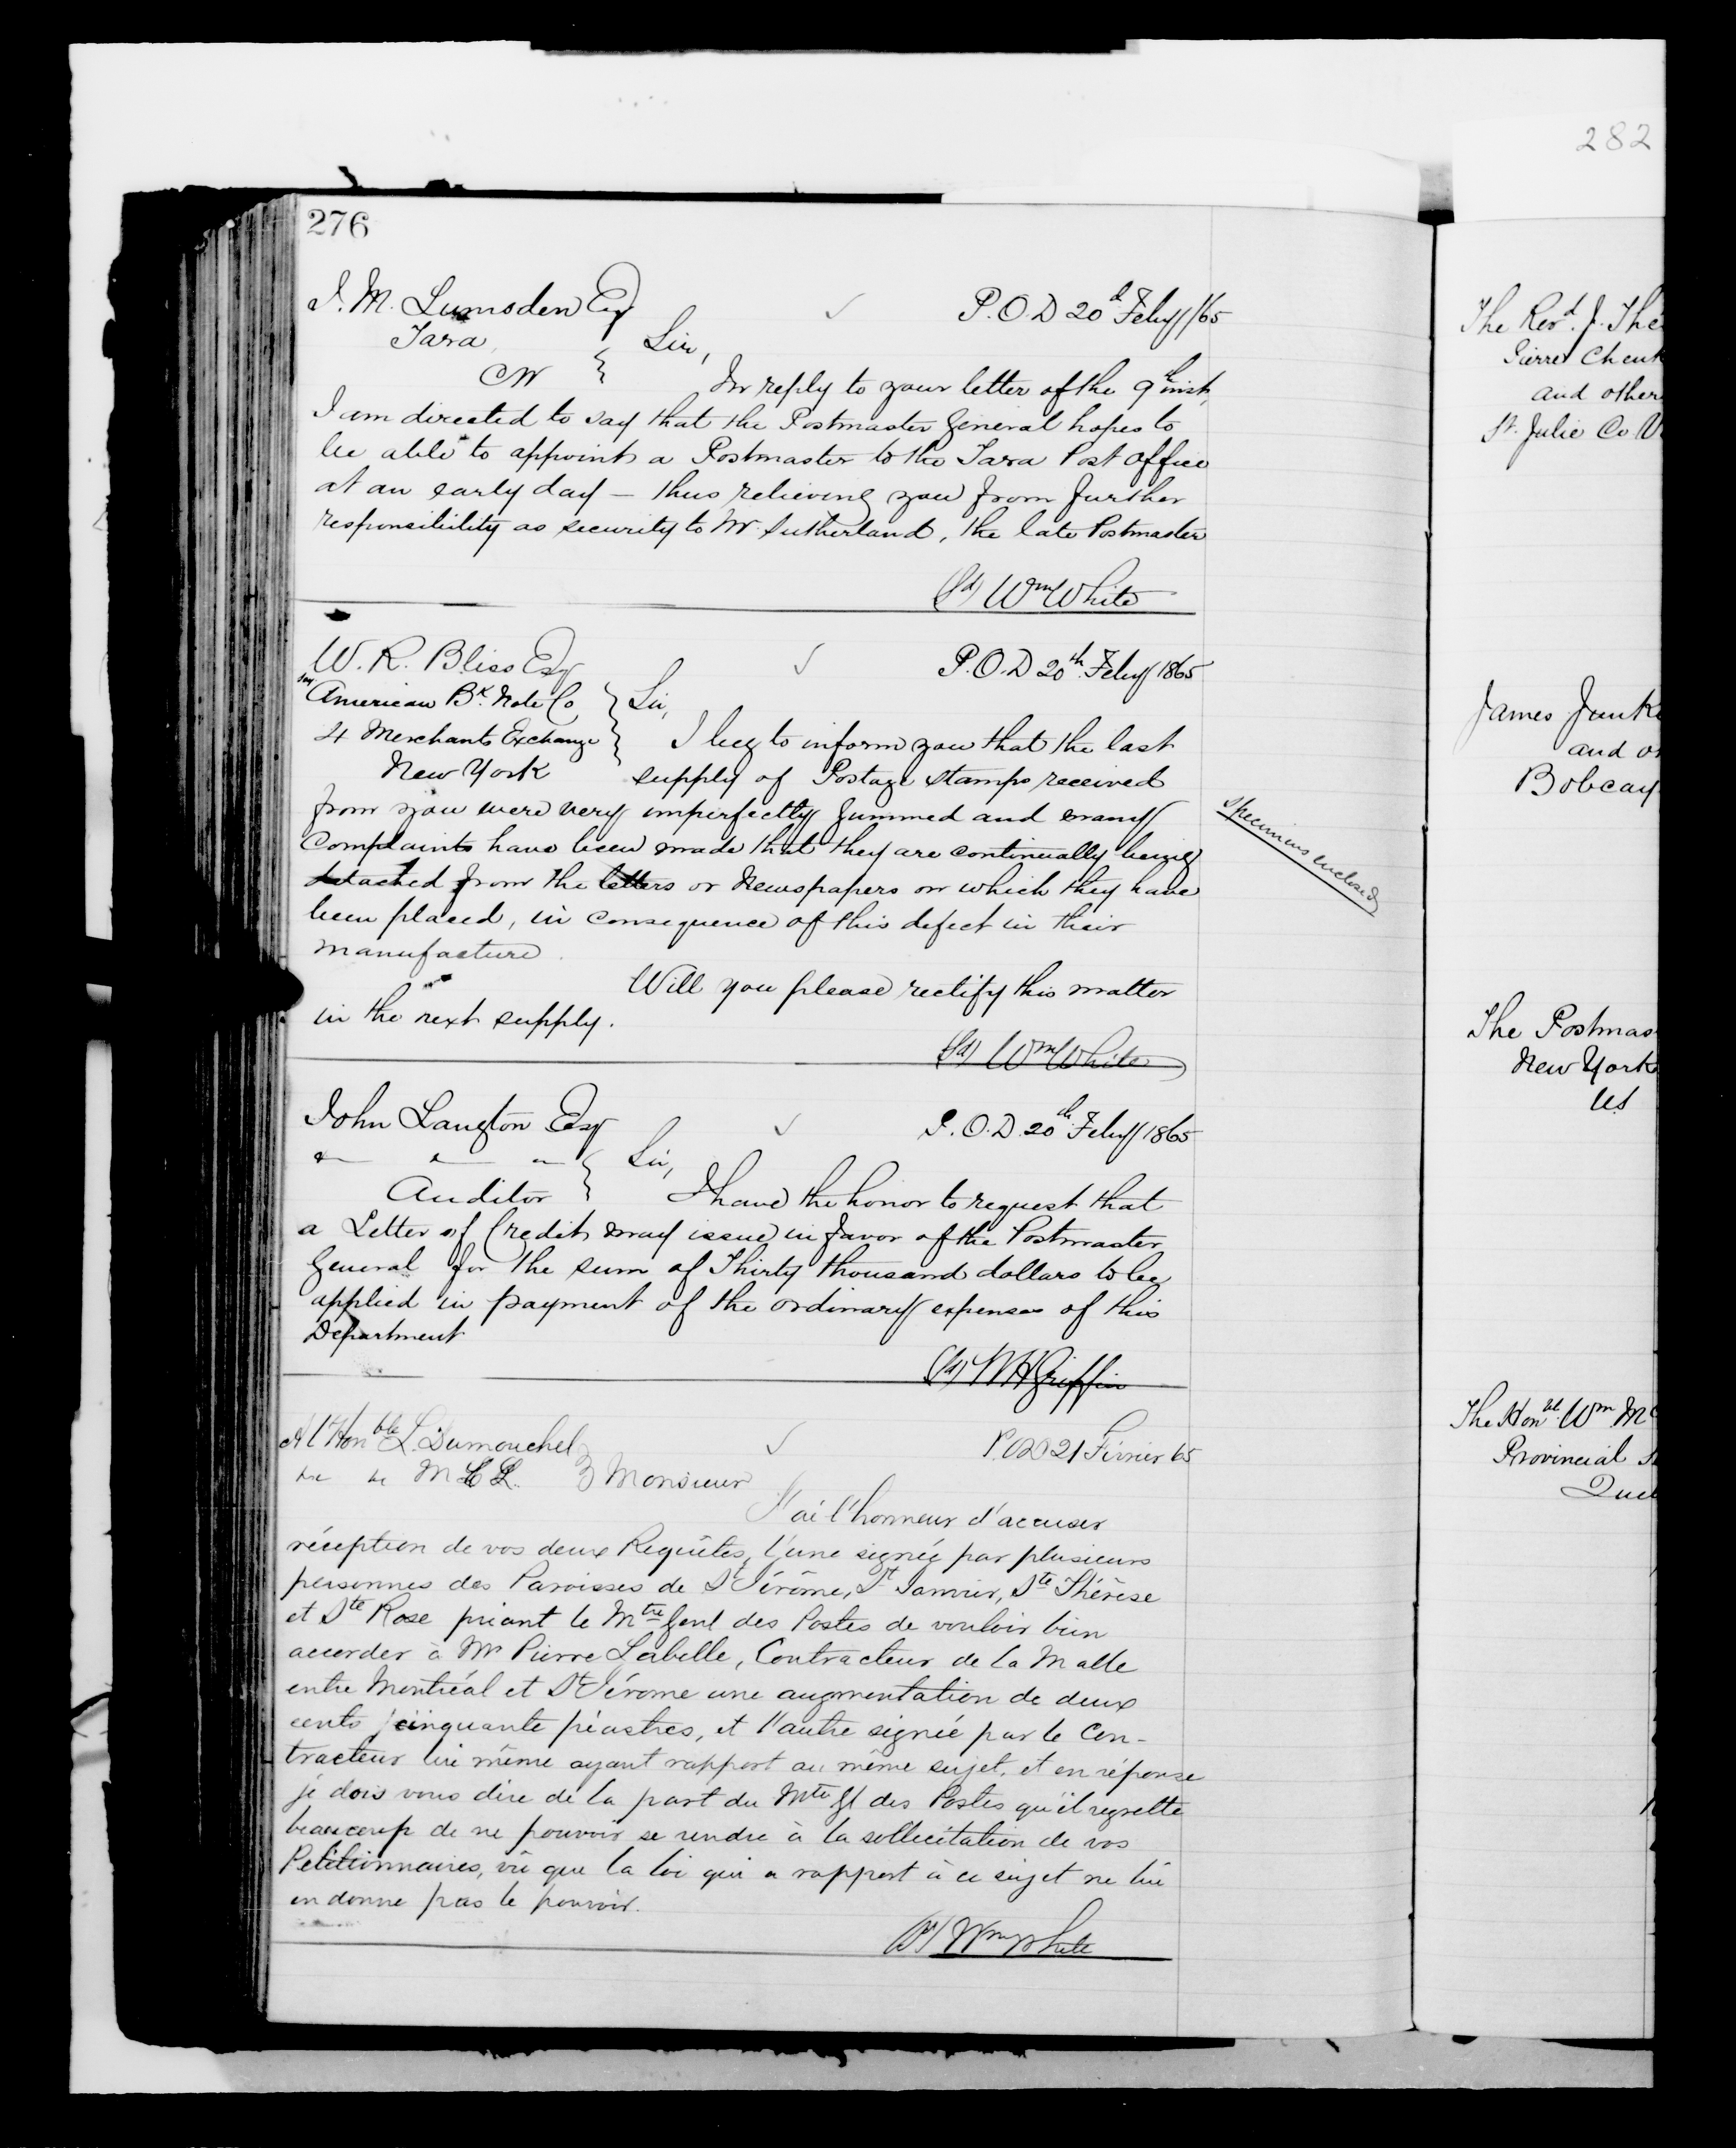 282
276
J. M. Lumsden Esq ✓ P.O.D 20th Feby /65
Tara Sir,
CW In reply to your letter of the 9th inst,
I am directed to say that the Postmaster General hopes to
be able to appoint a Postmaster to the Tara Post Office
at an early day — thus relieving you from further
responsibility as security to Mr. Sutherland, the late Postmaster
(Sd) Wm White
W. R. Bliss Esq ✓ P.O.D 20th Feby 1865
Secy American Bk. Note Co Sir,
4 Merchants Exchange I beg to inform you that the last
New York supply of Postage stamps received
from you were very imperfectly gummed and many
Complaints have been made that they are continually being
detached from the letters or Newspapers on which they have
been placed, in consequence of this defect in their
manufacture.
specimens enclosed
Will you please rectify this matter
in the next supply.
(Sd) Wm White
John Langton Esq ✓ P.O.D. 20th Feby 1865
Sir,
Auditor I have the honor to request that
a Letter of Credit may issue in favor of the Postmaster
General for the sum of Thirty thousand dollars to be
applied in payment of the ordinary expenses of this
Department
(Sd) W H Griffin
A l'Honble L. Dumouchel ✓ P.O.D 21 Février 65
M L C. Monsieur
J'ai l'honneur d'accuser
réception de vos deux Requêtes, l'une signée par plusieurs
personnes des Paroisses de St Jérôme, St Janvier, Ste Thérèse
et Ste Rose priant le Mtre Genl des Postes de vouloir bien
accorder à Mr Pierre Labelle, Contracteur de la Malle
entre Montréal et St Jérome une augmentation de deux
cents cinquante piastres, et l'autre signée par le Con-
tracteur lui même ayant rapport au même sujet, et en réponse
je dois vous dire de la part du Mtre Gl des Postes qu'il regrette
beaucoup de ne pouvoir se rendre à la sollicitation de vos
Petitionnaires, vû que la loi qui a rapport à ce sujet ne lui
en donne pas le pouvoir.
(Sd) Wm White
The Revd. J. The
Pierre Cheut
and other
St. Julie Co
James Junk
and o
Bobcay
The Postmas
New York
US
The Honbl Wm Mc
Provincial
Que